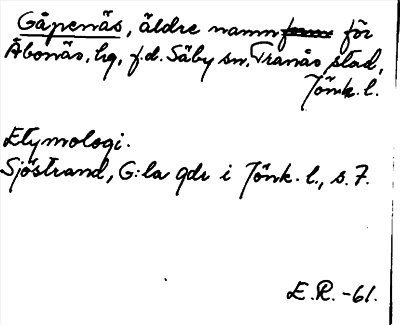 Gåpenäs, äldre namn för
Åbonäs, hg, f.d. Säby sn, Tranås stad,
Jönk. l.
Etymologi.
Sjöstrand, G:la gdr i Jönk. l., s. 7.
E.R. -61.